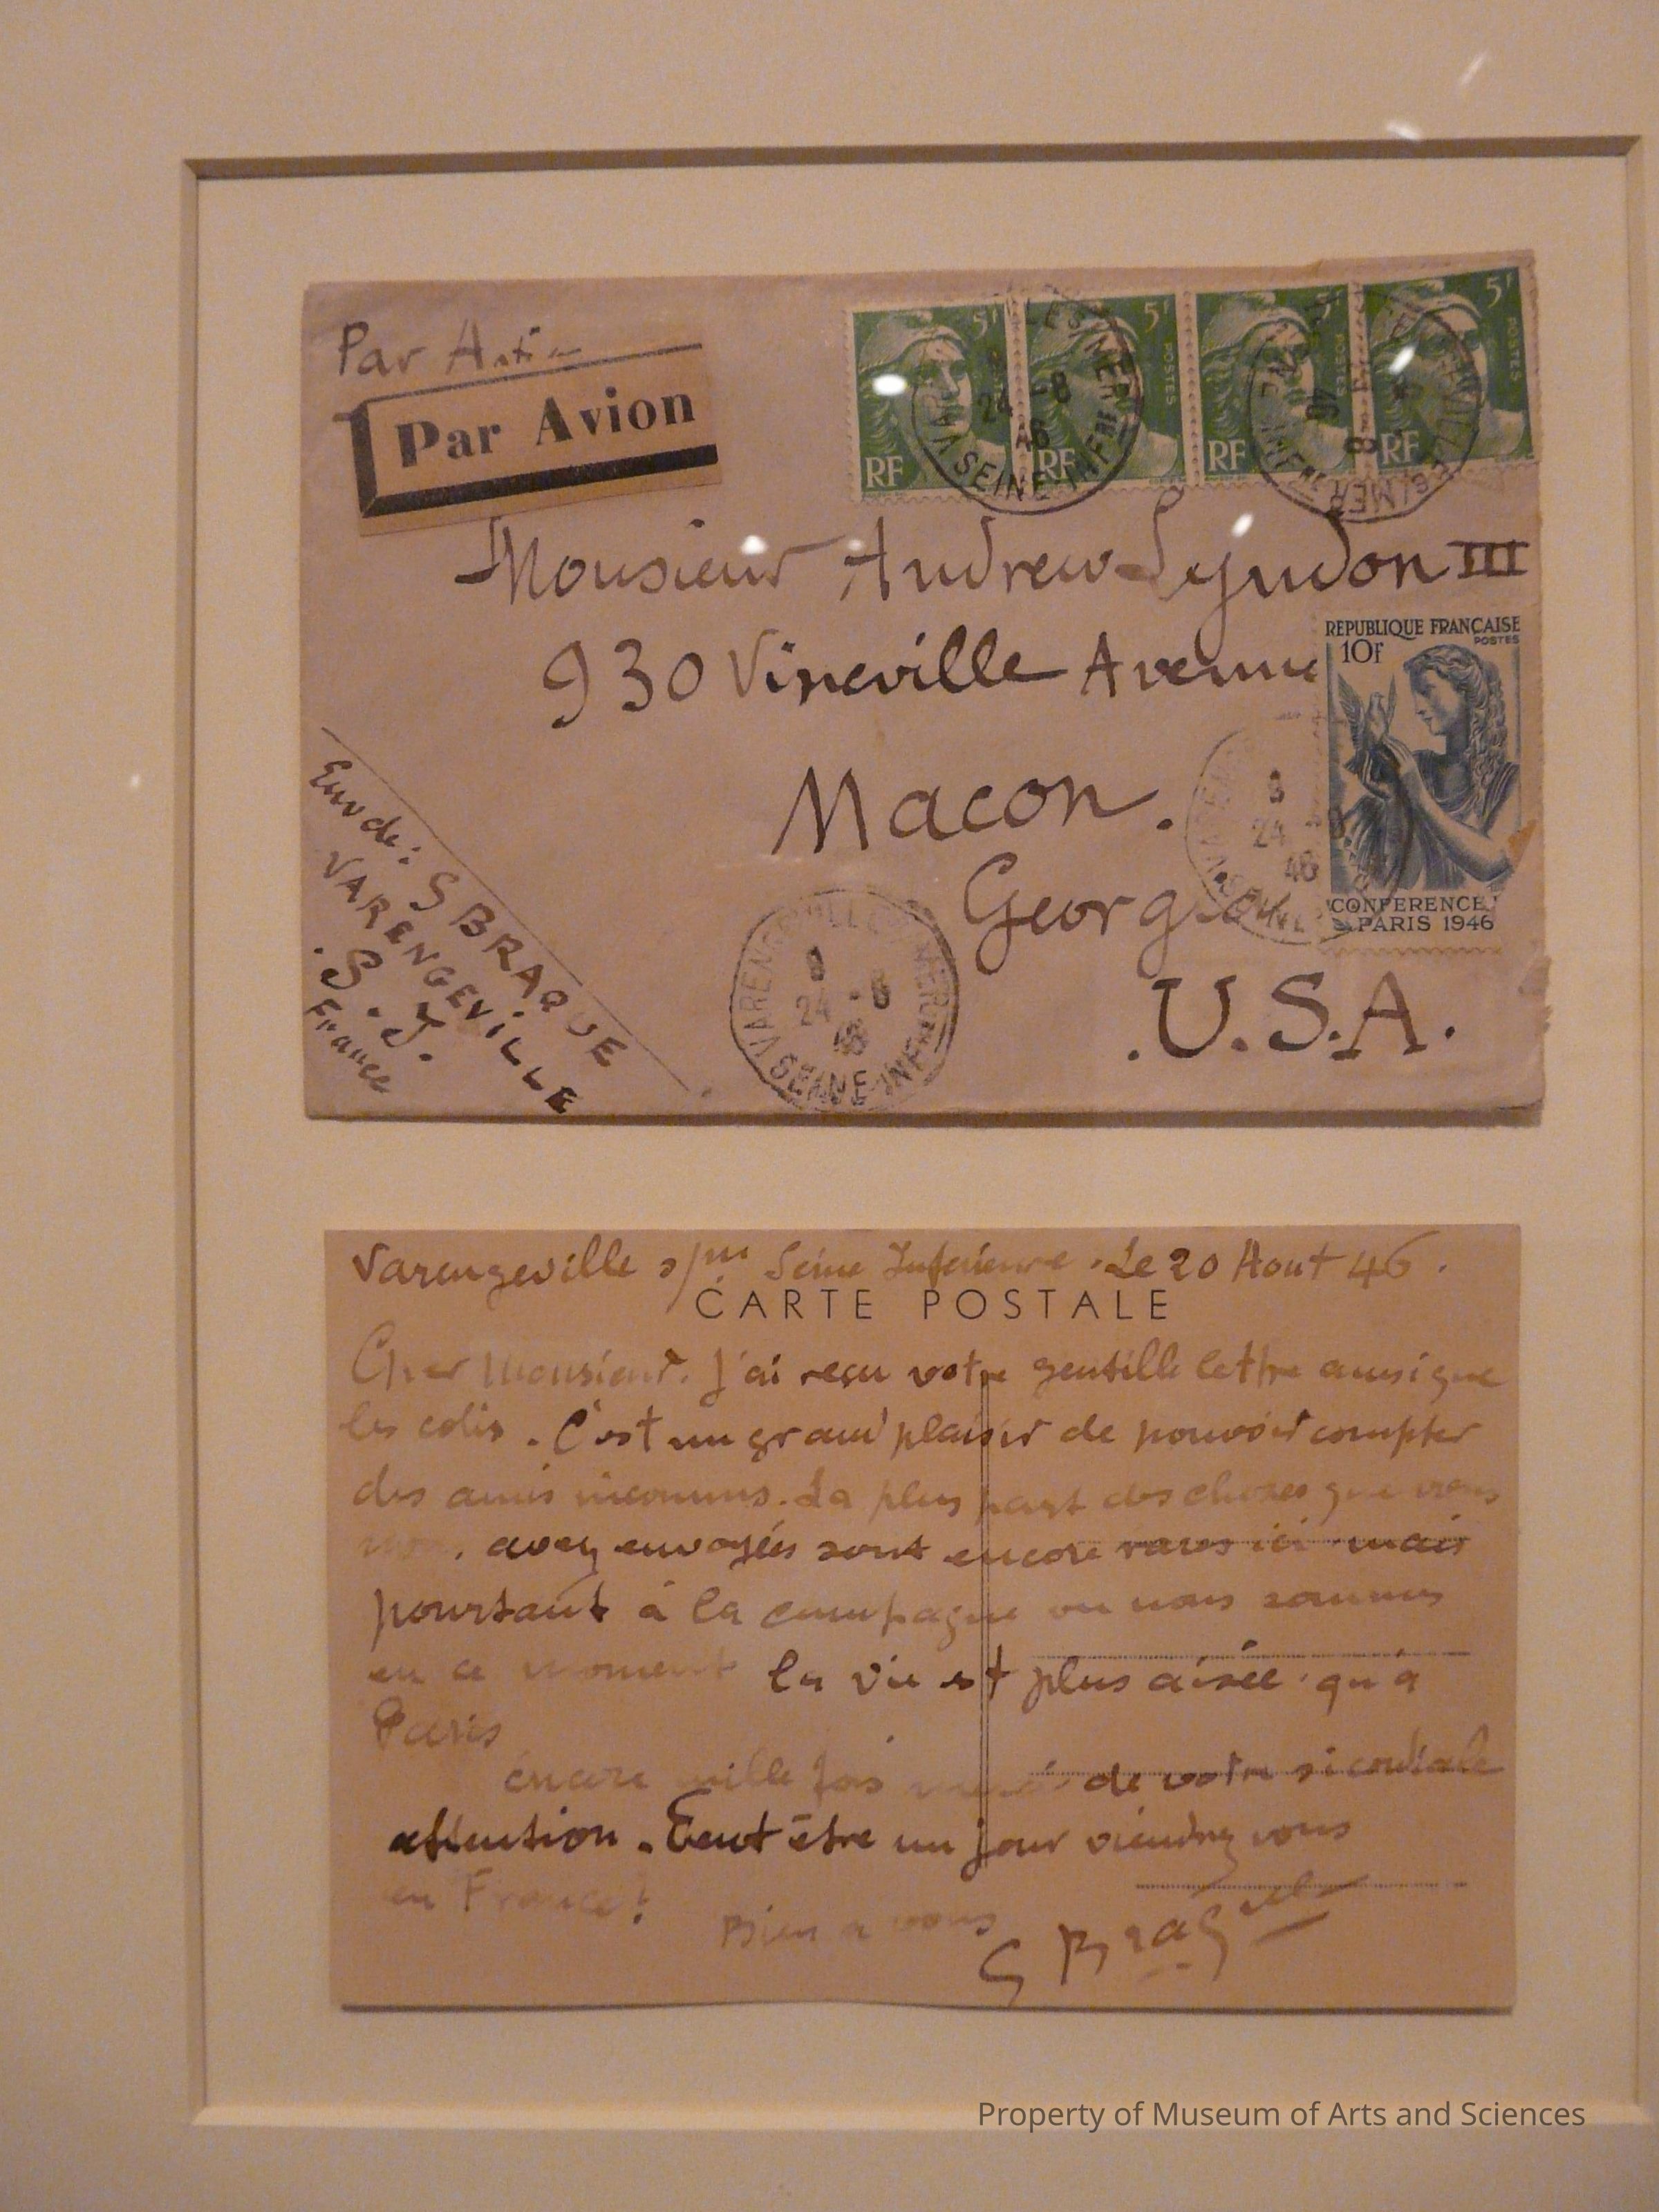 Par Avion
Par Avion
5F 5F 5F 5F
POSTES POSTES POSTES POSTES
RF RF RF RF
24 -8 46
SEINE INFRE
Monsieur Andrew Lyndon III
930 Vineville Avenue
REPUBLIQUE FRANÇAISE
POSTES
10F
Macon.
CONFERENCE
PARIS 1946
24 8 46
Georgia
.U.S.A.
Env de: G BRAQUE
VARENGEVILLE
.S.I.
France
VARENGEVILLE S MER
24 -8 46
SEINE INFRE
Varengeville s/mer Seine Inferieure. Le 20 Aout 46.
CARTE POSTALE
Cher Monsieur. J'ai reçu votre gentille lettre ainsi que
les colis. C'est un grand plaisir de pouvoir compter
des amis inconnus. La plus part des choses que vous
nous avez envoyées sont encore rares ici mais
pourtant à la campagne ou nous sommes
en ce moment la vie est plus aisée qu'a
Paris
encore mille fois merci de votre si cordiale
attention. Peut être un jour viendrez vous
en France!
Bien a vous
G Braque
Property of Museum of Arts and Sciences